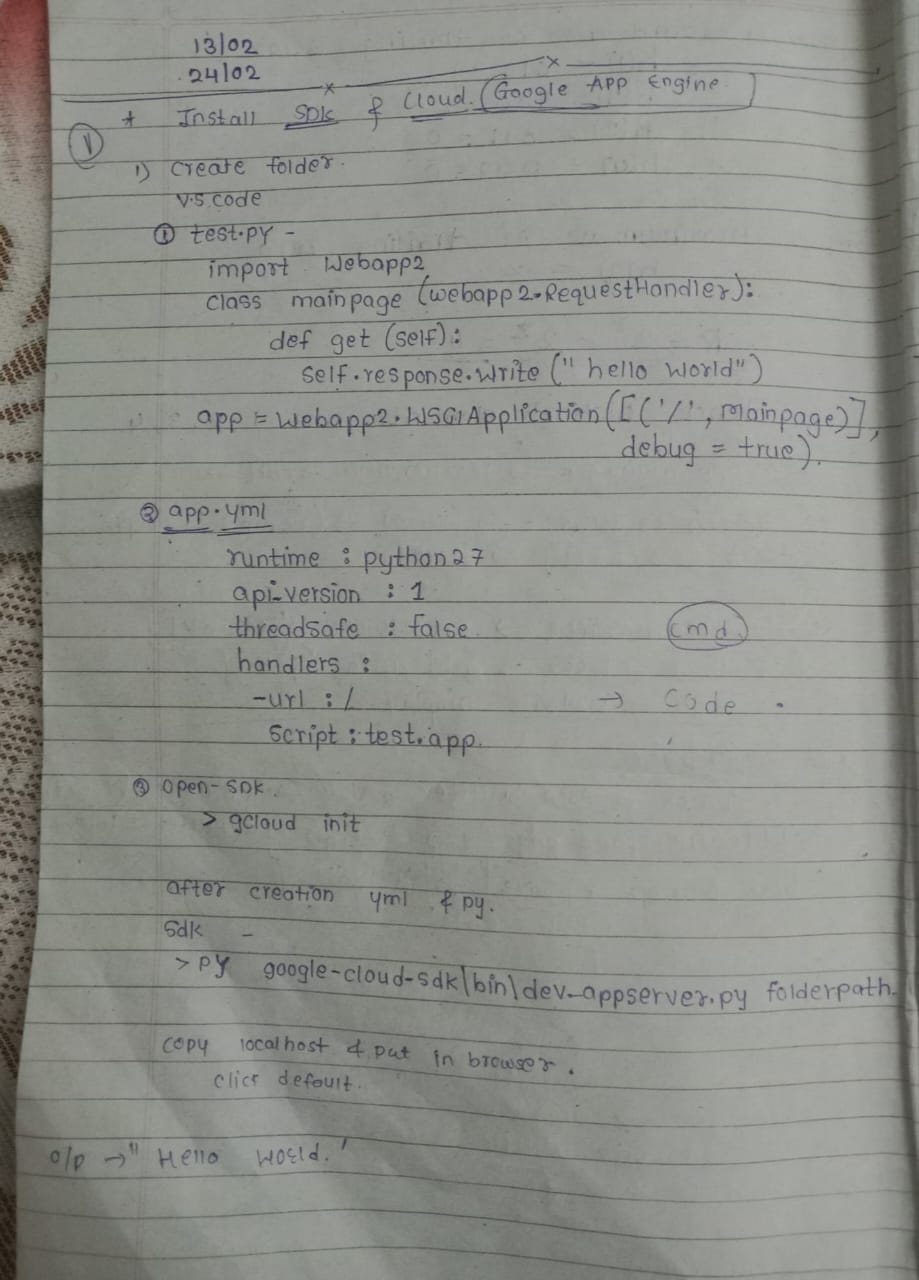 13/02
24/02
* Install SDK & Cloud. (Google App Engine)
1
1) Create folder.
V.S. code
① test.py -
import Webapp2
class mainpage (webapp2.RequestHandler):
def get (self):
self.response.write (" hello world")
app = Webapp2.WSGIApplication([('/', mainpage)],
debug = true).
② app.yml
runtime : python27
api-version : 1
threadsafe : false
cmd.
handlers :
-url : /
→ code .
script : test.app.
③ open-SDK.
> gcloud init
after creation yml & py.
sdk -
> py google-cloud-sdk\bin\dev_appserver.py folderpath.
copy localhost & put in browser.
clicr defoult.
o/p → " Hello World. '